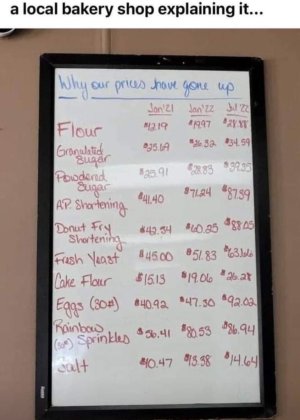 a local bakery shop explaining it...
Why our prices have gone up
Jan'21 Jan'22 Jul '22
Flour $12.19 $19.97 $28.88
Granulated Sugar $25.69 $26.32 $34.59
Powdered Sugar $25.91 $28.83 $39.35
A.P. Shortening $41.40 $71.24 $87.59
Donut Fry Shortening $42.34 $60.25 $88.05
Fresh Yeast $45.00 $51.83 $63.66
Cake Flour $15.13 $19.06 $26.28
Eggs (30#) $40.92 $47.30 $92.02
Rainbow Sprinkles $56.41 $80.53 $86.94
Salt $10.47 $13.38 $14.64